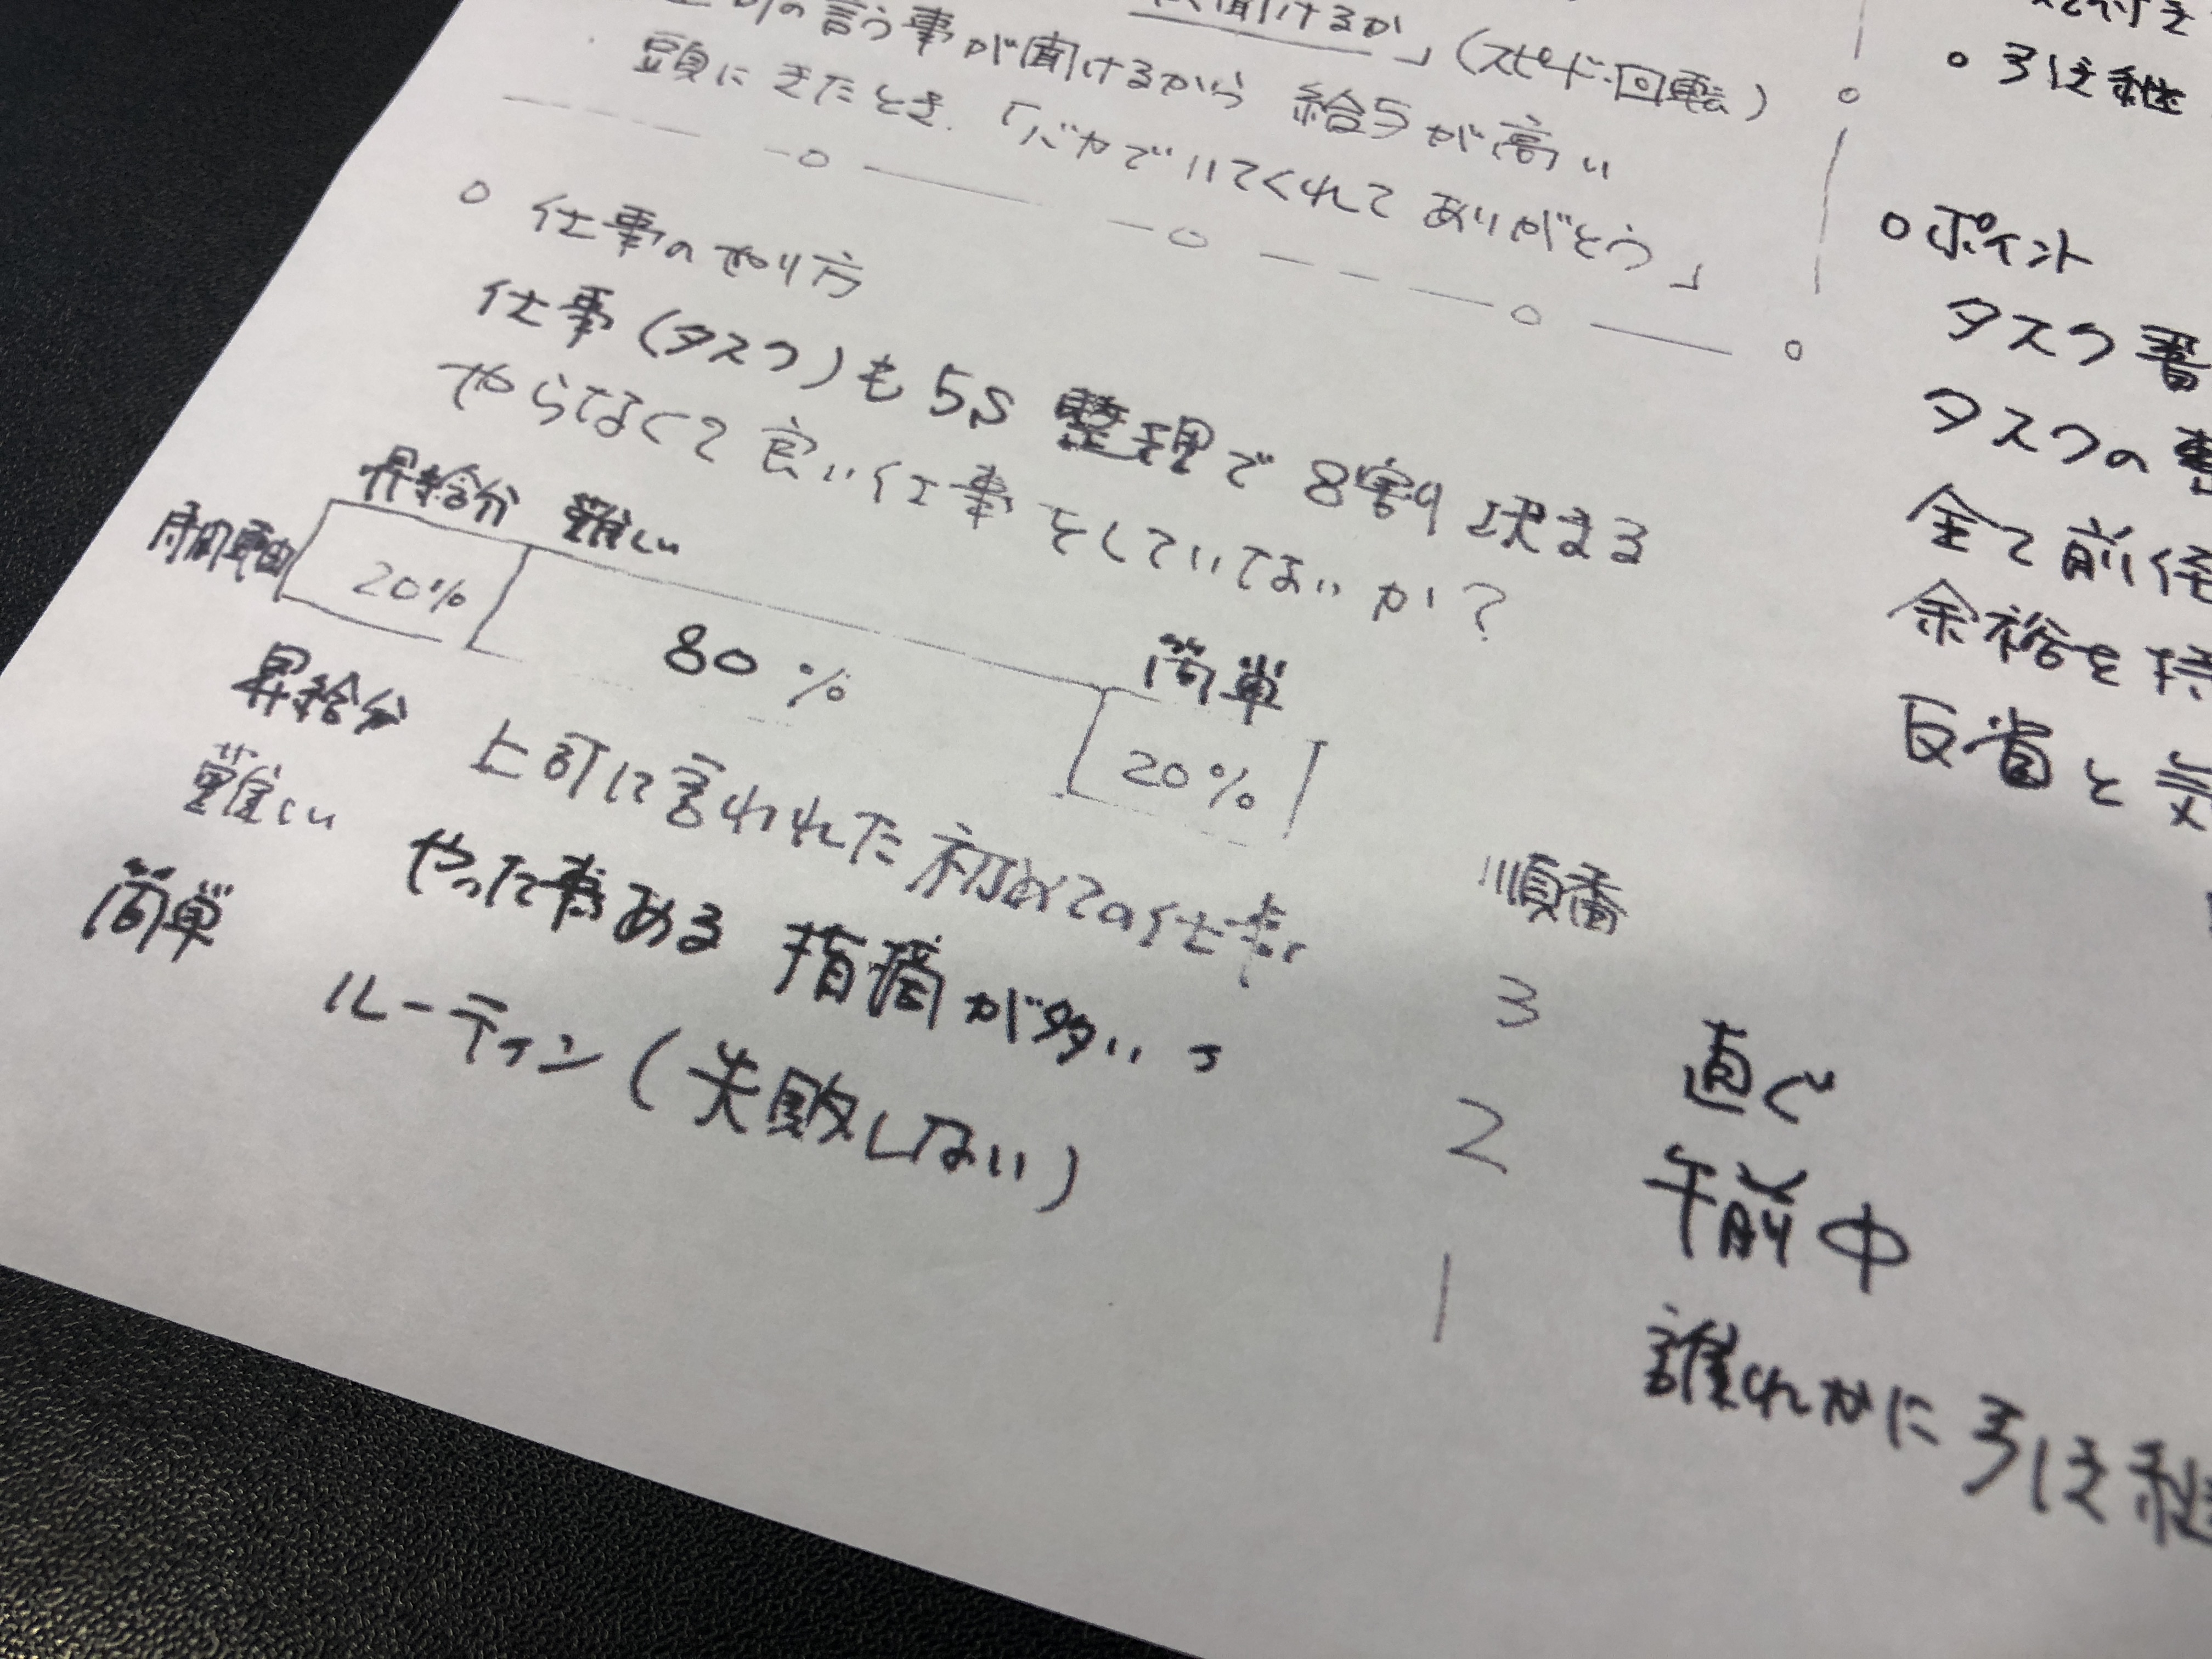 聞けるか」(スピード・回転)
の言う事が聞けるから 給与が高い
頭にきたとき、「バカでいてくれて ありがとう」
○ 仕事のやり方
仕事(タスク)も5S 整理で8割り決まる
やらなくて良い仕事をしていないか?
昇給分 難しい 簡単
時間軸 20% 80% 20%
順番
昇給分 上司に言われた初めての仕事 3 直ぐ
難しい やった事ある 指摘が多い 2 午前中
簡単 ルーティン(失敗しない) 1 誰れかに引き継
○ 引き継
○ ポイント
タスク書
タスクの整
全て前倒
余裕を持
反省と